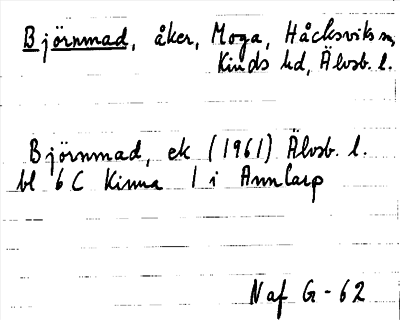 Björnmad, åker, Moga, Håcksviks sn,
Kinds hd, Älvsb. l.
Björnmad, ek (1961) Älvsb. l.
bl 6 C Kinna 1 i Annlarp
Naf G-62